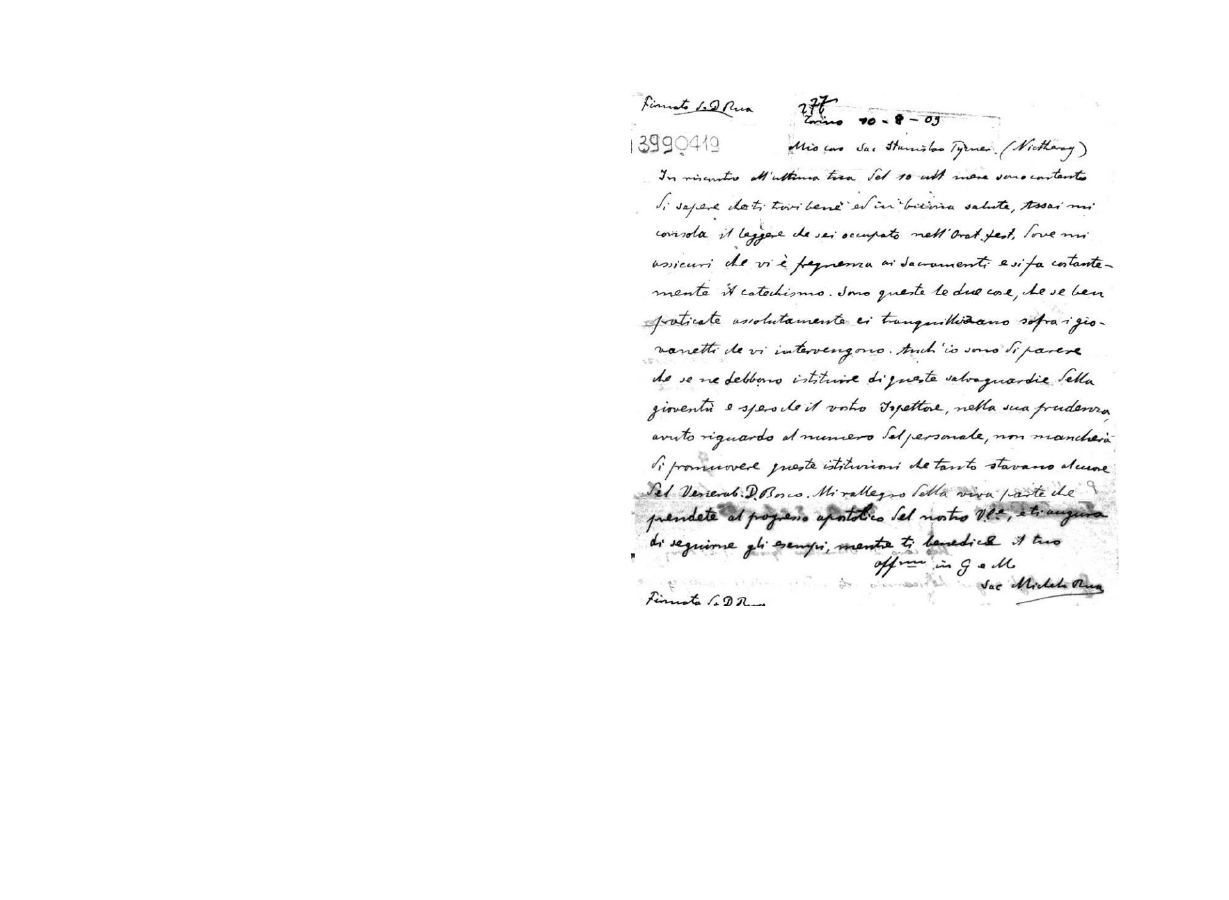 Firmato S. D Rua
277
Torino 10-8-09
3990419
Mio caro Sac Stanislao (Nictheroy)
In riscontro all'ultima tua del 10 ult mese sono contento
di sapere che ti trovi bene ed in buona salute, Assai mi
consola il leggere che sei occupato nell'Orat. fest. dove mi
assicuri che vi è frequenza ai Sacramenti e si fa costante-
mente il catechismo. Sono queste le due cose, che se ben
praticate assolutamente ci tranquillizzano sopra i gio-
vanetti che vi intervengono. Anch'io sono di parere
che se ne debbono istituire di queste salvaguardie della
gioventù e spero che il vostro Ispettore, nella sua prudenza,
avuto riguardo al numero del personale, non mancherà
di promuovere queste istituzioni che tanto stavano al cuore
del Venerab. D. Bosco. Mi rallegro della viva parte che
prendete al progresso apostolico del nostro e ti auguro
di seguirne gli esempi, mentre ti benedice il tuo
aff.mo in G e M
Sac Michele Rua
Firmato S. D Rua